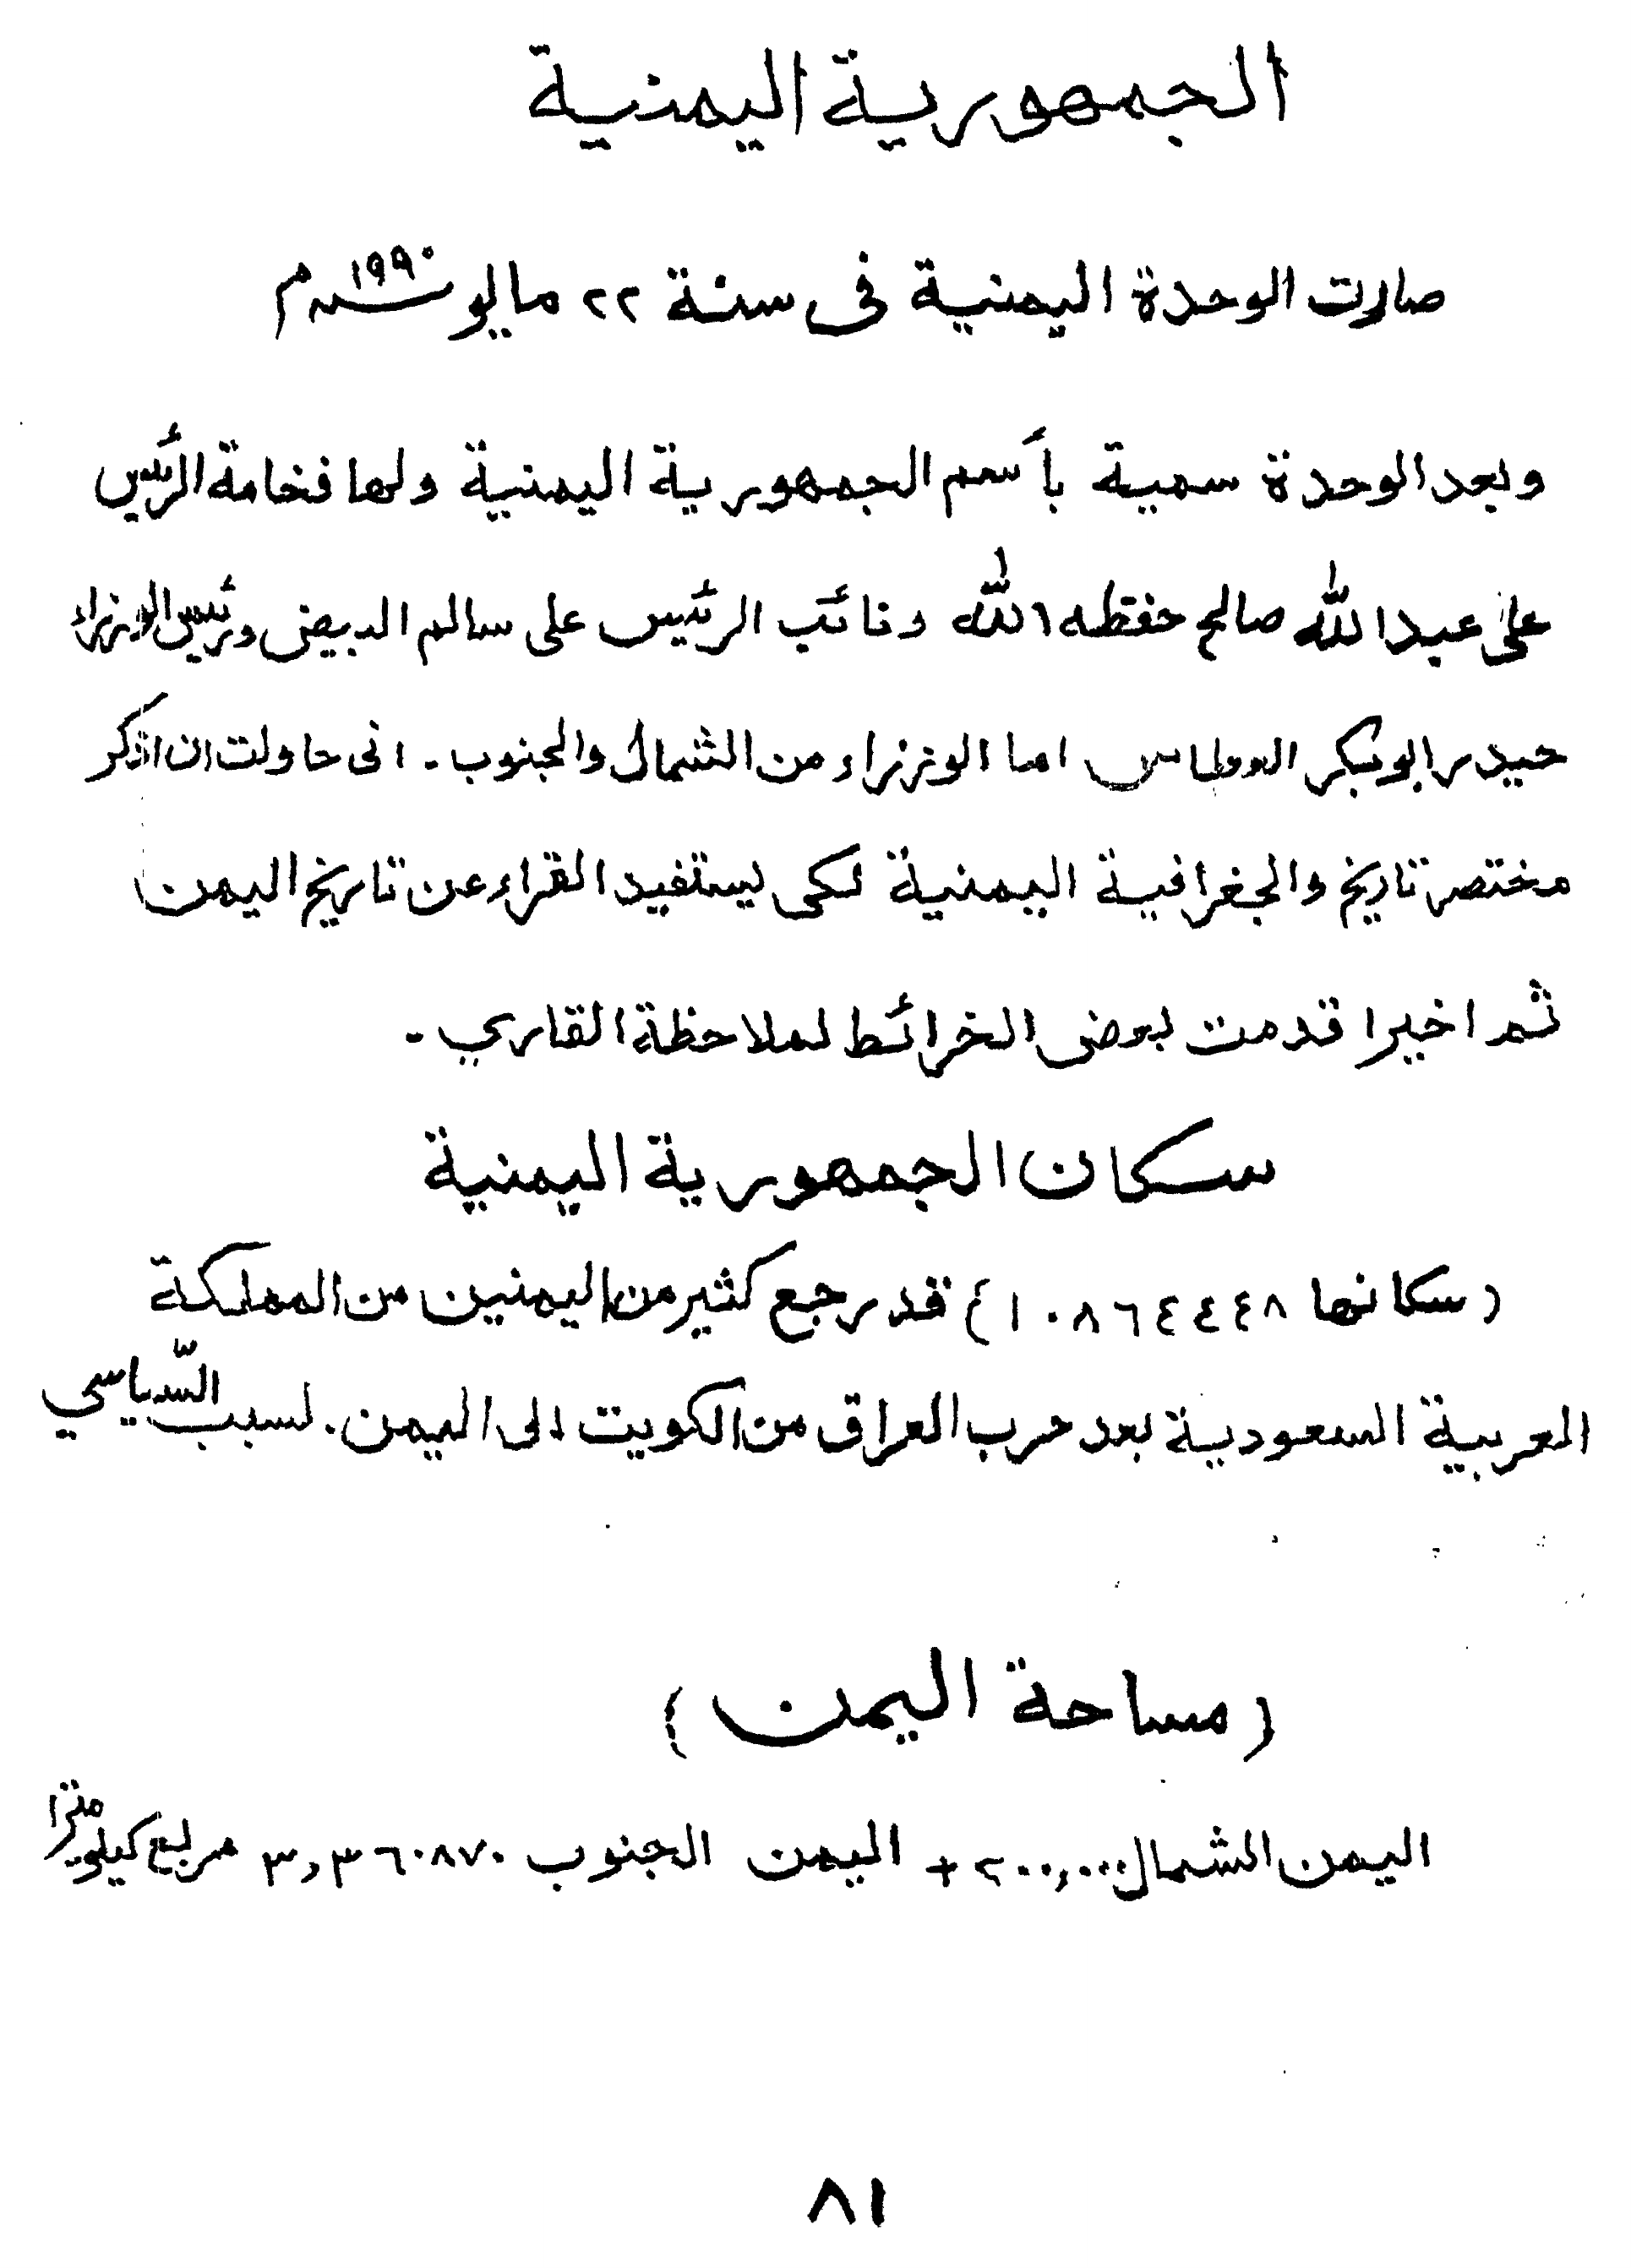 الجمهورية اليمنية
صارت الوحدة اليمنية فى سنة ٢٢ مايو سنة ١٩٩٠ م
وبعد الوحدة سمية بأسم الجمهورية اليمنية ولها فخامة الرئيس
على عبدالله صالح حفظه الله ونائب الرئيس على سالم البيض ورئيس الوزراء
حيدر ابوبكر اما الوزراء من الشمال والجنوب - انى حاولت ان اذكر
مختصر تاريخ والجغرافية اليمنية لكى يستفيد القراء عن تاريخ اليمن
ثم اخيرا قدمت بعض الخرائط لملاحظة القاري -
سكان الجمهورية اليمنية
(سكانها ١٠٨٦٤٤٤٨) قد رجع كثير من اليمنين من المملكة
العربية السعودية بعد حرب العراق من الكويت الى اليمن. لسبب السياسي
(مساحة اليمن)
اليمن الشمال ٢٠٠,٠٠٠ + اليمن الجنوب ٣,٣٦٠٨٧٠ مربع كيلو مترا
٨١